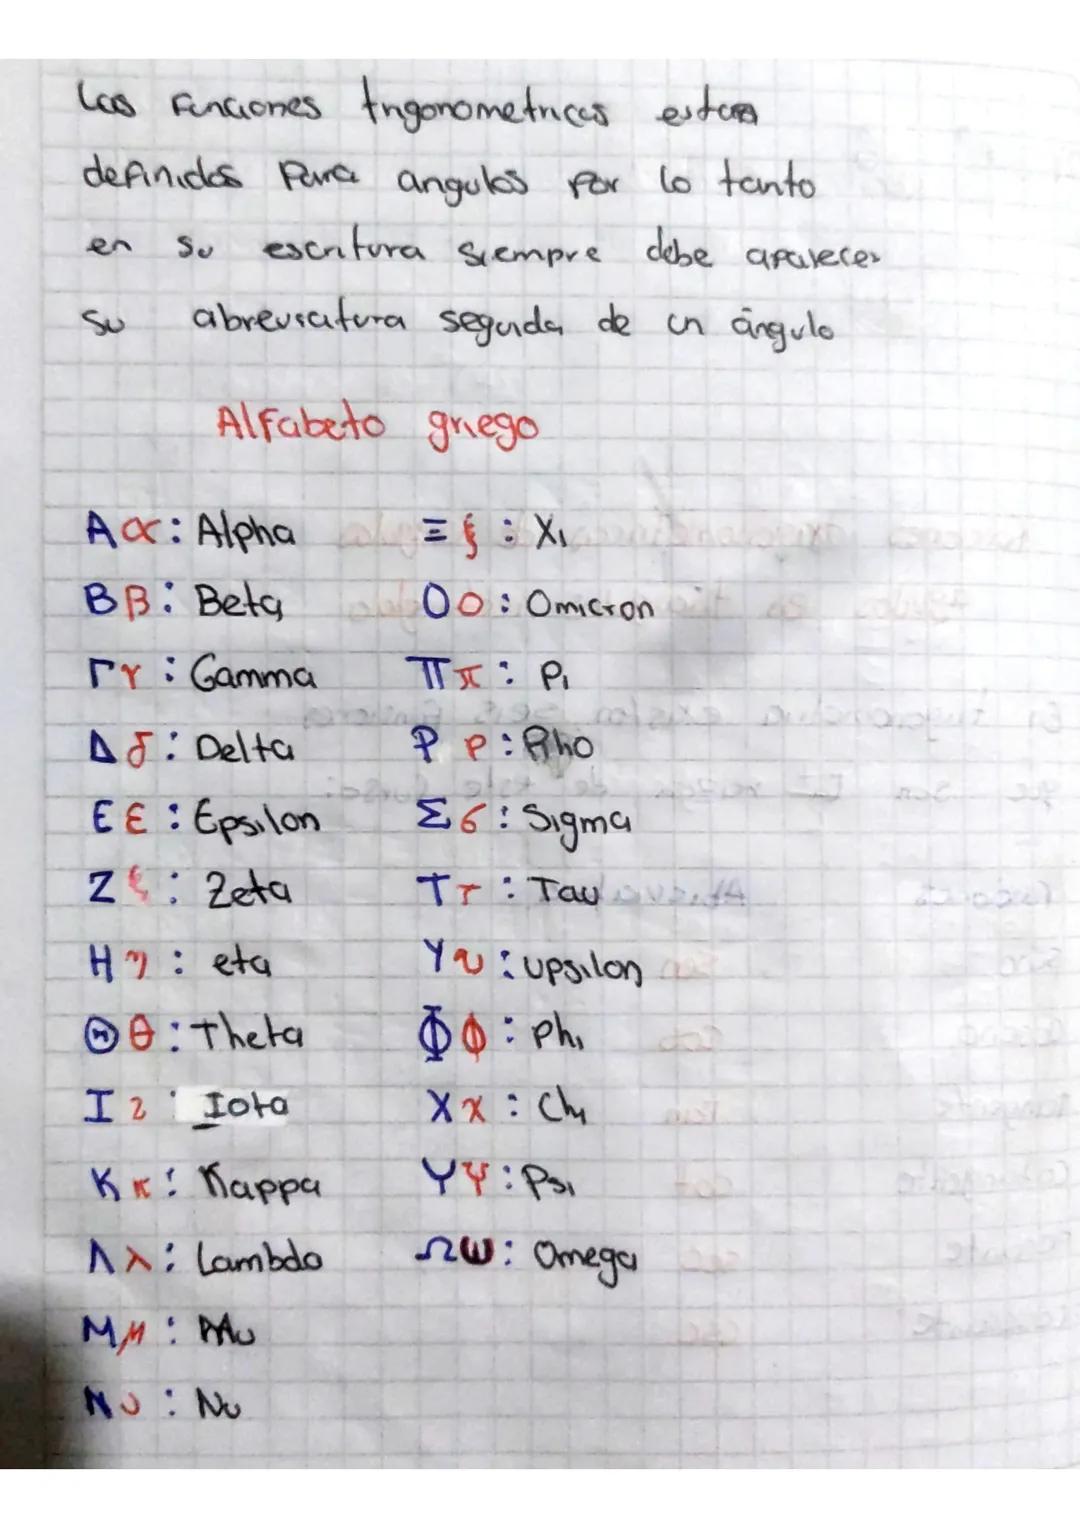 Las Funciones trigonometricas estan
definidas Para angulos por lo tanto
en su escritura siempre debe aparecer
su abreviatura seguida de un ángulo
Alfabeto griego
Α α : Alpha
Β β : Beta
Γ γ : Gamma
Δ δ : Delta
Ε ε : Epsilon
Ζ ξ : Zeta
Η η : eta
Θ θ : Theta
Ι ι : Iota
Κ κ : Kappa
Λ λ : Lambda
Μ μ : Mu
Ν υ : Nu
Ξ ξ : Xi
Ο ο : Omicron
Π π : Pi
Ρ ρ : Rho
Σ σ : Sigma
Τ τ : Tau
Υ υ : upsilon
Φ φ : Phi
Χ χ : Chi
Ψ ψ : Psi
Ω ω : Omega